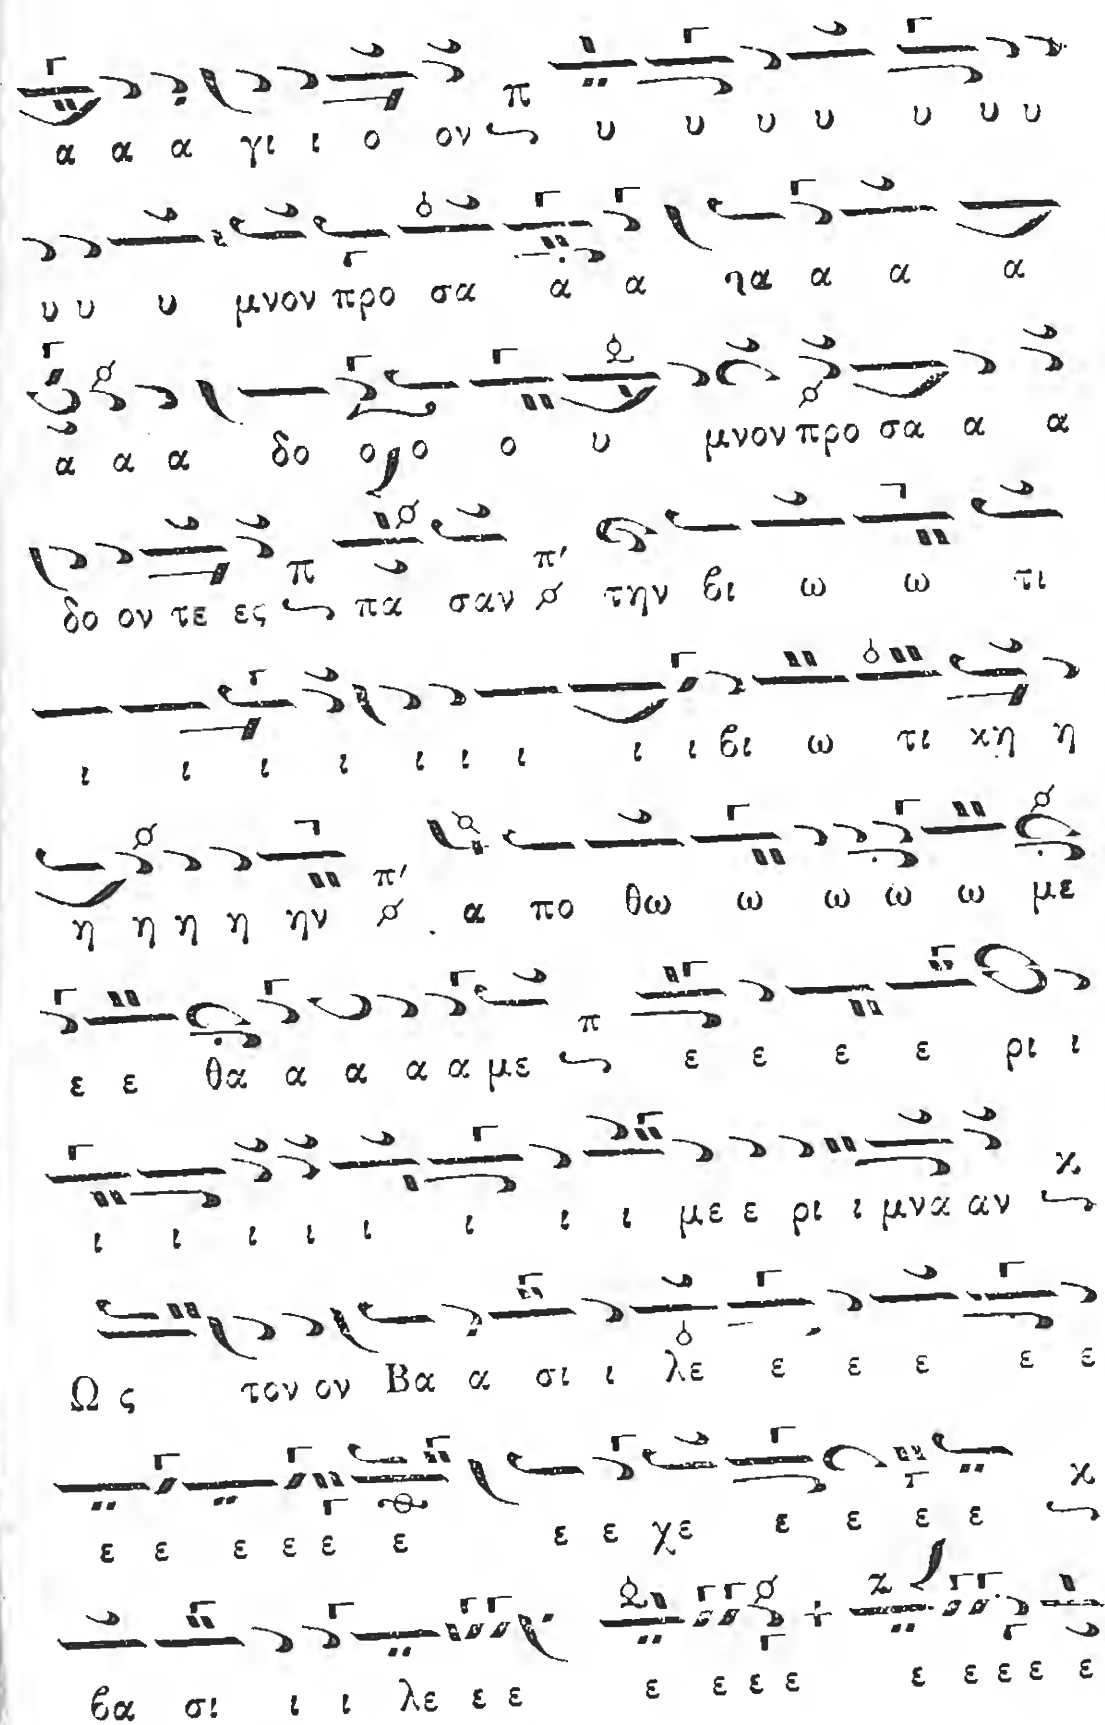 α α α γι ι ο ον π υ υ υ υ υ υ υ
υ υ υ μνον προ σα α α ηα α α α
α α α δο ο ο ο υ μνον προ σα α α
δο ον τε ες π πα σαν π' την βι ω ω τι
ι ι ι ι ι ι ι ι ι βι ω τι κη η
η η η η ην π' α πο θω ω ω ω ω με
ε ε θα α α α α με π ε ε ε ε ρι ι
ι ι ι ι ι ι ι ι με ε ρι ι μνα αν κ
Ως τον ον Βα α σι ι λε ε ε ε ε ε
ε ε ε ε ε ε ε ε χε ε ε ε ε κ
βα σι ι ι λε ε ε ε ε ε ε ε ε ε ε ε